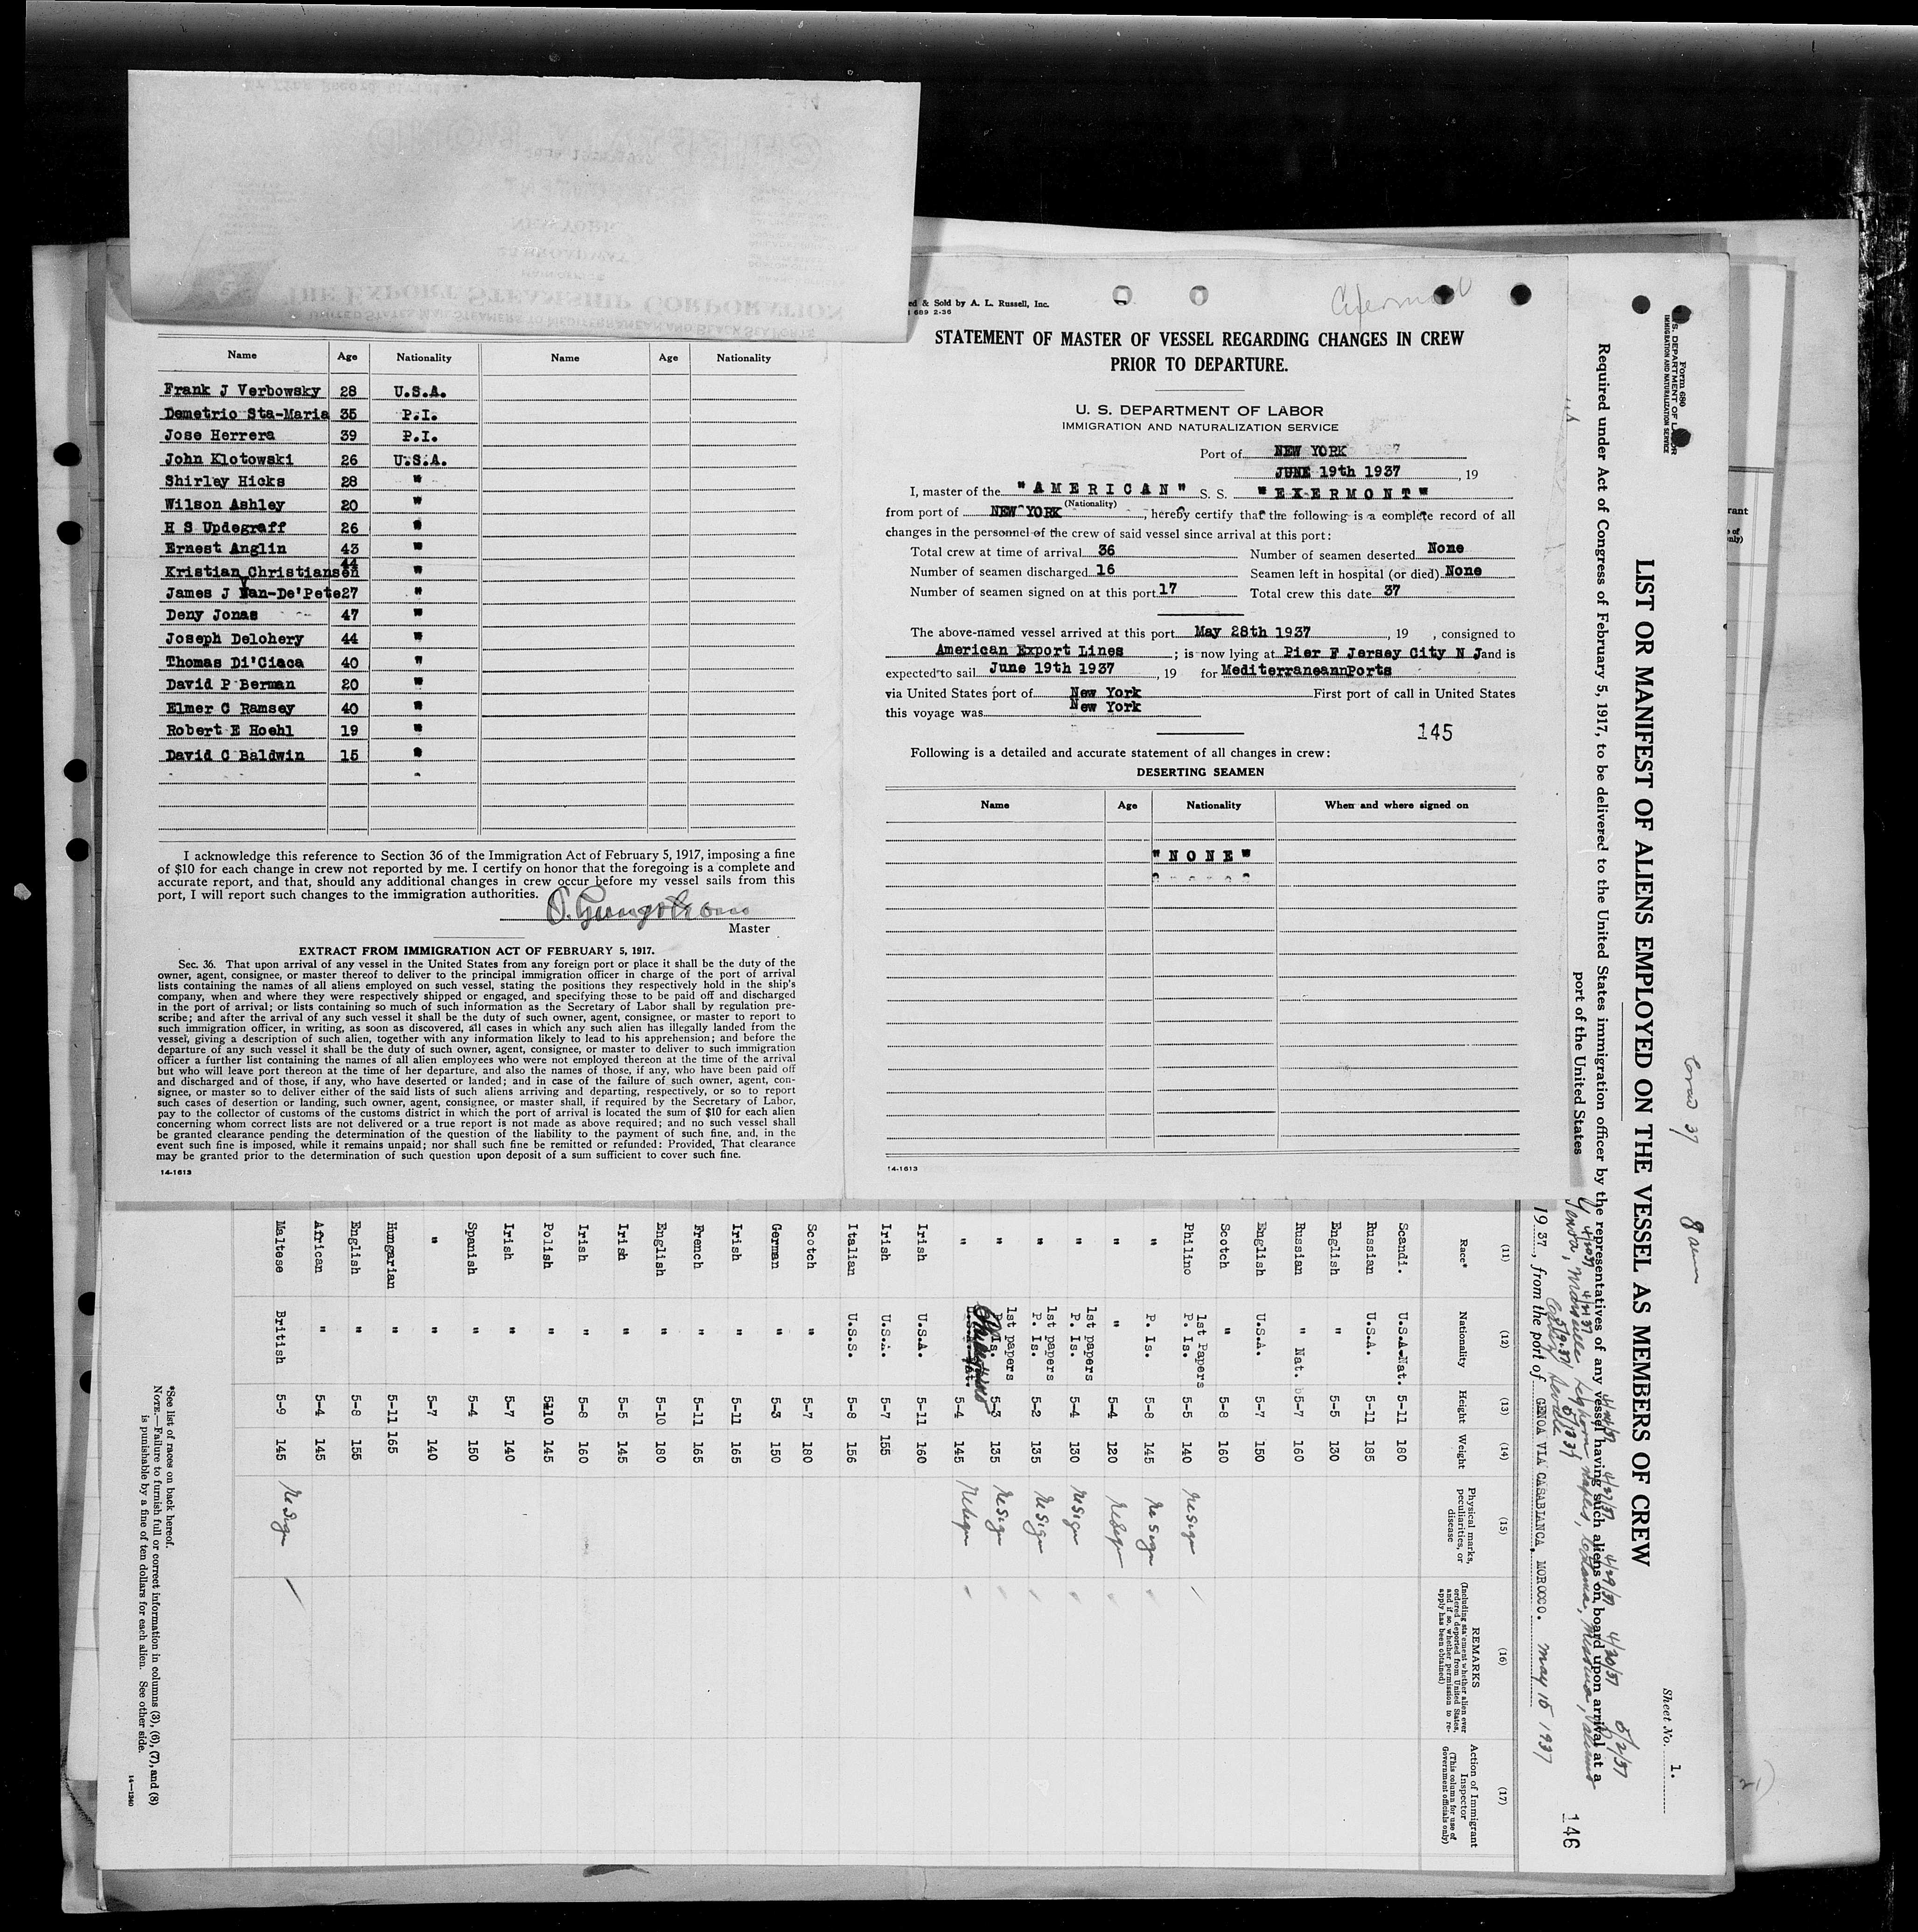 THE EXPORT STEAMSHIP CORPORATION
UNITED STATES MAIL STEAMERS TO MEDITERRANEAN AND BLACK SEA PORTS
Name Age Nationality Name Age Nationality
Frank J Verbowsky 28 U.S.A.
Demetrio Sta-Maria 35 P.I.
Jose Herrera 39 P.I.
John Klotowski 26 U.S.A.
Shirley Hicks 28 "
Wilson Ashley 20 "
H S Updegraff 26 "
Ernest Anglin 43 "
Kristian Christiansen 44 "
James J Van-De'Pete 27 "
Deny Jonas 47 "
Joseph Delohery 44 "
Thomas Di'Ciaca 40 "
David P Berman 20 "
Elmer C Ramsey 40 "
Robert E Hoehl 19 "
David C Baldwin 15 "
I acknowledge this reference to Section 36 of the Immigration Act of February 5, 1917, imposing a fine
of $10 for each change in crew not reported by me. I certify on honor that the foregoing is a complete and
accurate report, and that, should any additional changes in crew occur before my vessel sails from this
port, I will report such changes to the immigration authorities.
Master
EXTRACT FROM IMMIGRATION ACT OF FEBRUARY 5, 1917.
Sec. 36. That upon arrival of any vessel in the United States from any foreign port or place it shall be the duty of the
owner, agent, consignee, or master thereof to deliver to the principal immigration officer in charge of the port of arrival
lists containing the names of all aliens employed on such vessel, stating the positions they respectively hold in the ship's
company, when and where they were respectively shipped or engaged, and specifying those to be paid off and discharged
in the port of arrival; or lists containing so much of such information as the Secretary of Labor shall by regulation pre-
scribe; and after the arrival of any such vessel it shall be the duty of such owner, agent, consignee, or master to report to
such immigration officer, in writing, as soon as discovered, all cases in which any such alien has illegally landed from the
vessel, giving a description of such alien, together with any information likely to lead to his apprehension; and before the
departure of any such vessel it shall be the duty of such owner, agent, consignee, or master to deliver to such immigration
officer a further list containing the names of all alien employees who were not employed thereon at the time of the arrival
but who will leave port thereon at the time of her departure, and also the names of those, if any, who have been paid off
and discharged and of those, if any, who have deserted or landed; and in case of the failure of such owner, agent, con-
signee, or master so to deliver either of the said lists of such aliens arriving and departing, respectively, or so to report
such cases of desertion or landing, such owner, agent, consignee, or master shall, if required by the Secretary of Labor,
pay to the collector of customs of the customs district in which the port of arrival is located the sum of $10 for each alien
concerning whom correct lists are not delivered or a true report is not made as above required; and no such vessel shall
be granted clearance pending the determination of the question of the liability to the payment of such fine, and, in the
event such fine is imposed, while it remains unpaid; nor shall such fine be remitted or refunded: Provided, That clearance
may be granted prior to the determination of such question upon deposit of a sum sufficient to cover such fine.
14-1613
ed & Sold by A. L. Russell, Inc.
689 2-36
STATEMENT OF MASTER OF VESSEL REGARDING CHANGES IN CREW
PRIOR TO DEPARTURE.
U. S. DEPARTMENT OF LABOR
IMMIGRATION AND NATURALIZATION SERVICE
Port of NEW YORK
JUNE 19th 1937, 19
I, master of the "AMERICAN" S. S. "EXERMONT"
(Nationality)
from port of NEW YORK, hereby certify that the following is a complete record of all
changes in the personnel of the crew of said vessel since arrival at this port:
Total crew at time of arrival 36 Number of seamen deserted None
Number of seamen discharged 16 Seamen left in hospital (or died) None
Number of seamen signed on at this port 17 Total crew this date 37
The above-named vessel arrived at this port May 28th 1937, 19 , consigned to
American Export Lines ; is now lying at Pier F Jersey City N J and is
expected to sail June 19th 1937, 19 for MediterraneannPorts
via United States port of New York First port of call in United States
this voyage was New York
145
Following is a detailed and accurate statement of all changes in crew:
DESERTING SEAMEN
Name Age Nationality When and where signed on
"NONE"
14-1613
Form 680
U. S. DEPARTMENT OF LABOR
IMMIGRATION AND NATURALIZATION SERVICE
Sheet No. 1.
LIST OR MANIFEST OF ALIENS EMPLOYED ON THE VESSEL AS MEMBERS OF CREW
Required under Act of Congress of February 5, 1917, to be delivered to the United States immigration officer by the representatives of any vessel having such aliens on board upon arrival at a
port of the United States
1937, from the port of GENOA VIA CASABLANCA, MOROCCO. May 15 1937
146
(11) (12) (13) (14) (15) (16) (17)
Race* Nationality Height Weight Physical marks, peculiarities, or disease REMARKS (Including statement whether alien ever ordered deported from United States, and if so, whether permission to re-apply has been obtained) Action of Immigrant Inspector (This column for use of Government officials only)
Scandi. U.S.A.Nat. 5-11 180
Russian U.S.A. 5-11 185
English " 5-5 130
Russian " Nat. 5-7 160
English U.S.A. 5-7 150
Scotch " 5-8 160
Philino 1st Papers P. Is. 5-5 140 No Sign
" P. Is. 5-8 145 No Sign
" " 5-4 120 No Sign
" 1st papers P. Is. 5-4 130 No Sign
" 1st papers P. Is. 5-2 135 No Sign
" 1st papers P. Is. 5-3 135 No Sign
" 5-4 145 No Sign
Irish U.S.A. 5-11 160
Irish U.S.A. 5-7 155
Italian U.S.S. 5-8 156
Scotch " 5-7 180
German " 5-3 150
Irish " 5-11 165
French " 5-11 165
English " 5-10 180
Irish " 5-5 145
Irish " 5-8 160
Polish " 5-10 145
Irish " 5-7 140
Spanish " 5-4 150
" " 5-7 140
Hungarian " 5-11 165
English " 5-8 155
African " 5-4 145
Maltese British 5-9 145 No Sign
*See list of races on back hereof.
NOTE.—Failure to furnish full or correct information in columns (3), (6), (7), and (8)
is punishable by a fine of ten dollars for each alien. See other side.
14-1240